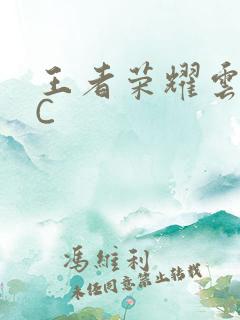 王者荣耀雲
C
馮維利
未经同意禁止转载